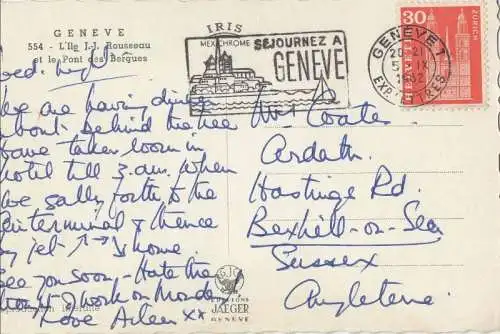 GENEVE
554 - L'Ile J.-J. Rousseau
et le Pont des Bergues
Wed. night
We are having dinner
about behind the
have taken room in
hotel till 3.am. when
we sally forth to the
Air terminal & thence
by jet ↑→↓ home.
See you soon - Hate the
thought of work on Monday
Love Aileen xx
IRIS
MEXICHROME
SÉJOURNEZ A
GENÈVE
GENEVE 1
20-21
5. IX
1962
EXP. LETTRES
30
ZÜRICH
HELVETIA
Mrs Coates
Ardath
Hastings Rd.
Bexhill-on-Sea
Sussex
Angleterre.
SJG
EDITIONS
JAEGER
GENÈVE
Reproduction interdite